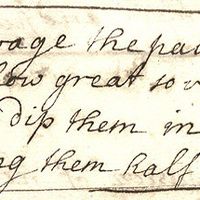 wage the pa
low great so w
dip them in
g them half